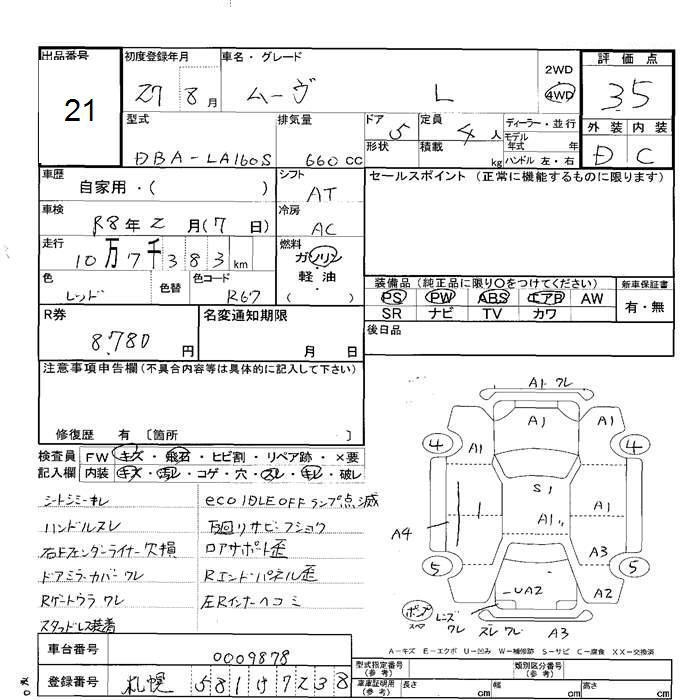 出品番号
21
初度登録年月
27 8 月
車名・グレード
ムーヴ L
2WD
4WD
評価点
3.5
型式
DBA-LA160S
排気量
660 cc
ドア 5
形状
定員 4 人
積載 kg
ディーラー・並行
モデル年式 年
ハンドル 左・右
外装 内装
D C
車歴
自家用・( )
シフト
AT
セールスポイント (正常に機能するものに限ります)
車検
R8年 2 月(7 日)
冷房
AC
走行
10万7千383 km
燃料
ガソリン
・
軽油
( )
色
レッド
色替
色コード
R67
装備品(純正品に限り○をつけてください)
PS PW ABS エアB AW
SR ナビ TV カワ
新車保証書
有・無
R券
8,780 円
名変通知期限
月 日
後日品
注意事項申告欄(不具合内容等は具体的に記入して下さい)
修復歴 有 〔箇所 〕
検査員 FW・キズ・飛石・ヒビ割・リペア跡・×要
記入欄 内装・キズ・汚レ・コゲ・穴・スレ・キレ・破レ
シートシミ・キレ
ecoIDLEOFFランプ点滅
ハンドルスレ
下廻リサビ・フショク
右Fフェンダーライナー欠損
ロアサポート歪
ドアミラーカバーワレ
Rエンドパネル歪
Rゲートウラワレ
左Rインナーヘコミ
スタッドレス装着
A1 ワレ
4 A1 A1 A1 4
S1
A1 A1
A4
A3
5 5
UA2 A2
ポンプ
スペア
レンズワレ
スレ ワレ A3
A－キズ E－エクボ U－凹み W－補修跡 S－サビ C－腐食 XX－交換済
車台番号
0009878
登録番号
札幌 581け7238
型式指定番号
(参考)
類別区分番号
(参考)
車庫証明用
(参考)
長さ cm
幅 cm
高さ cm